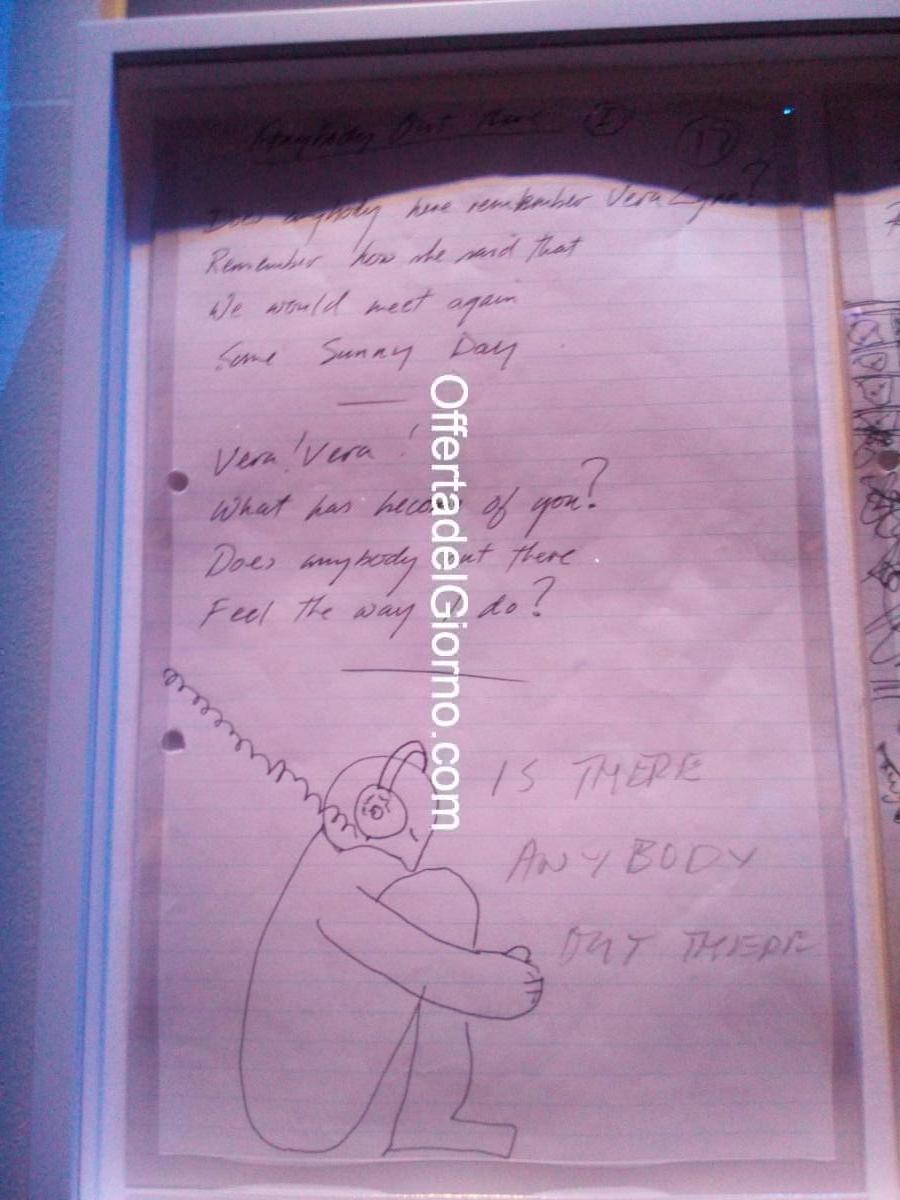 Anybody Out There I
17
Does anybody here remember Vera Lynn?
Remember how she said that
We would meet again
Some Sunny Day
Vera! Vera!
What has become of you?
Does anybody out there
Feel the way I do?
IS THERE
ANYBODY
OUT THERE
OffertadelGiorno.com